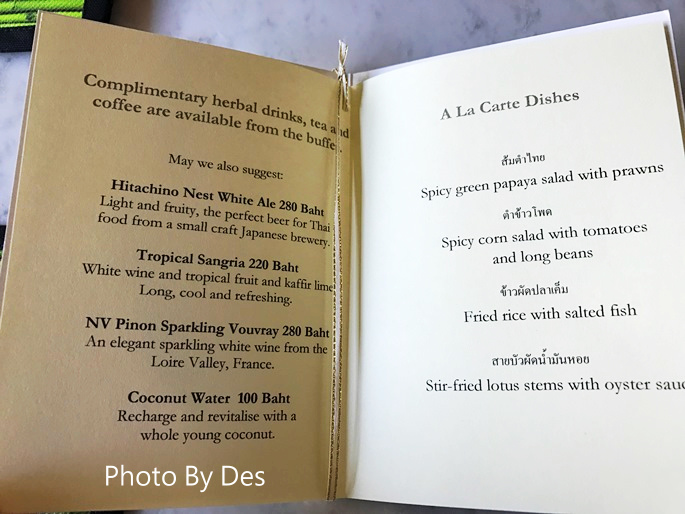 Complimentary herbal drinks, tea and
coffee are available from the buffet.
May we also suggest:
Hitachino Nest White Ale 280 Baht
Light and fruity, the perfect beer for Thai
food from a small craft Japanese brewery.
Tropical Sangria 220 Baht
White wine and tropical fruit and kaffir lime
Long, cool and refreshing.
NV Pinon Sparkling Vouvray 280 Baht
An elegant sparkling white wine from the
Loire Valley, France.
Coconut Water 100 Baht
Recharge and revitalise with a
whole young coconut.
A La Carte Dishes
ส้มตำไทย
Spicy green papaya salad with prawns
ตำข้าวโพด
Spicy corn salad with tomatoes
and long beans
ข้าวผัดปลาเค็ม
Fried rice with salted fish
สายบัวผัดน้ำมันหอย
Stir-fried lotus stems with oyster sauc
Photo By Des